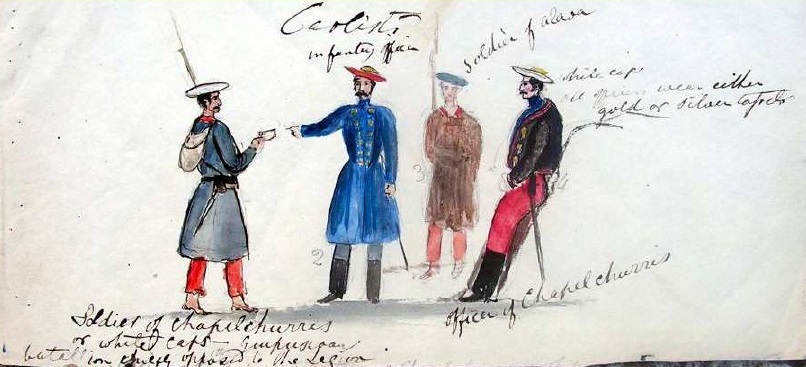 Carlists
infantry officer
Soldier of alava
white cap
officers wear either
gold or silver tassels
3
4
2
officer of Chapelchurris
Soldier of Chapelchurris
or white caps Guipuscoan
batallion chiefly opposed to the Legion